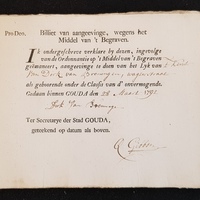 Pro-Deo.
Billet van aangeevinge, wegens het
Middel van 't Begraven.
IK ondergeschreve verklare by desen, ingevolge
van de Ordonnantie op 't Middel van 't Begraven
geëmaneert, aangeevinge te doen van het Lyk van
Dirk van
als gehoorende onder de Classis van d' onvermogende
Gedaan binnen GOUDA den 28 Maart 1795
Dirk Van
Ter Secretarye der Stad GOUDA,
geteekend op datum als boven.